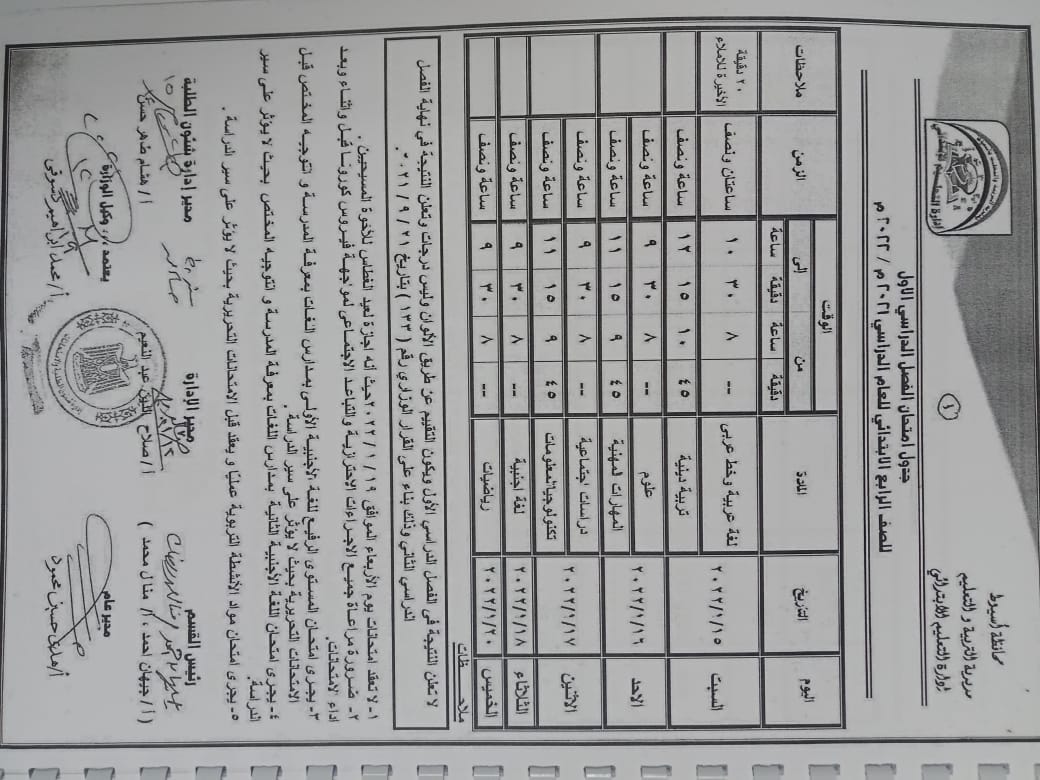 محافظة أسيوط
مديرية التربية والتعليم
إدارة التعليم الابتدائي
٤
جدول امتحان الفصل الدراسي الأول
للصف الرابع الابتدائي للعام الدراسي ٢٠٢١ م / ٢٠٢٢ م
اليوم التاريخ المادة الوقت الزمن ملاحظات
من إلى
دقيقة ساعة دقيقة ساعة
السبت ٢٠٢٢/١/١٥ لغة عربية وخط عربى -- ٨ ٣٠ ١٠ ساعتان ونصف ٢٠ دقيقة الأخيرة للاملاء
تربية دينية ٤٥ ١٠ ١٥ ١٢ ساعة ونصف
الاحد ٢٠٢٢/١/١٦ علوم -- ٨ ٣٠ ٩ ساعة ونصف
المهارات المهنية ٤٥ ٩ ١٥ ١١ ساعة ونصف
الاثنين ٢٠٢٢/١/١٧ دراسات اجتماعية -- ٨ ٣٠ ٩ ساعة ونصف
تكنولوجيا المعلومات ٤٥ ٩ ١٥ ١١ ساعة ونصف
الثلاثاء ٢٠٢٢/١/١٨ لغة اجنبية -- ٨ ٣٠ ٩ ساعة ونصف
الخميس ٢٠٢٢/١/٢٠ رياضيات -- ٨ ٣٠ ٩ ساعة ونصف
ملاحـــظات
لا تعلن النتيجة فى الفصل الدراسي الأول ويكون التقييم عن طريق الألوان وليس درجات وتعلن النتيجة في نهاية الفصل
الدراسي الثاني وذلك بناء على القرار الوزاري رقم ( ١٣٣ ) بتاريخ ٢١ / ٩ / ٢٠٢١
١- لا تعقد امتحانات يوم الأربعاء الموافق ١٩ / ١ / ٢٠٢٢ حيث أنه اجازة لعيد الغطاس للاخوة المسيحيين .
٢- ضرورة مراعاة جميع الاجراءات الاحترازية والتباعد الاجتماعى لمواجهة فيروس كورونا قبل واثناء وبعد
اداء الامتحانات
٣- يجرى امتحان المستوى الرفيع للغة الأجنبية الأولى بمدارس اللغات بمعرفة المدرسة والتوجيه المختص قبل
الامتحانات التحريرية بحيث لا يؤثر على سير الدراسة
٤- يجرى امتحان اللغة الأجنبية الثانية بمدارس اللغات بمعرفة المدرسة والتوجيه المختص بحيث لا يؤثر على سير
الدراسة
٥- يجرى امتحان مواد الأنشطة التربوية عمليا و يعقد قبل الامتحانات التحريرية بحيث لا يؤثر على سير الدراسة .
رئيس القسم مدير الإدارة مدير إدارة شئون الطلبة
( أ / جيهان احمد ، أ / منال محمد ) أ / صلاح عبد النعيم أ / هشام طاهر حسن
مدير عام يعتمد ،، وكيل الوزارة
أ / محمد ابراهيم دسوقى